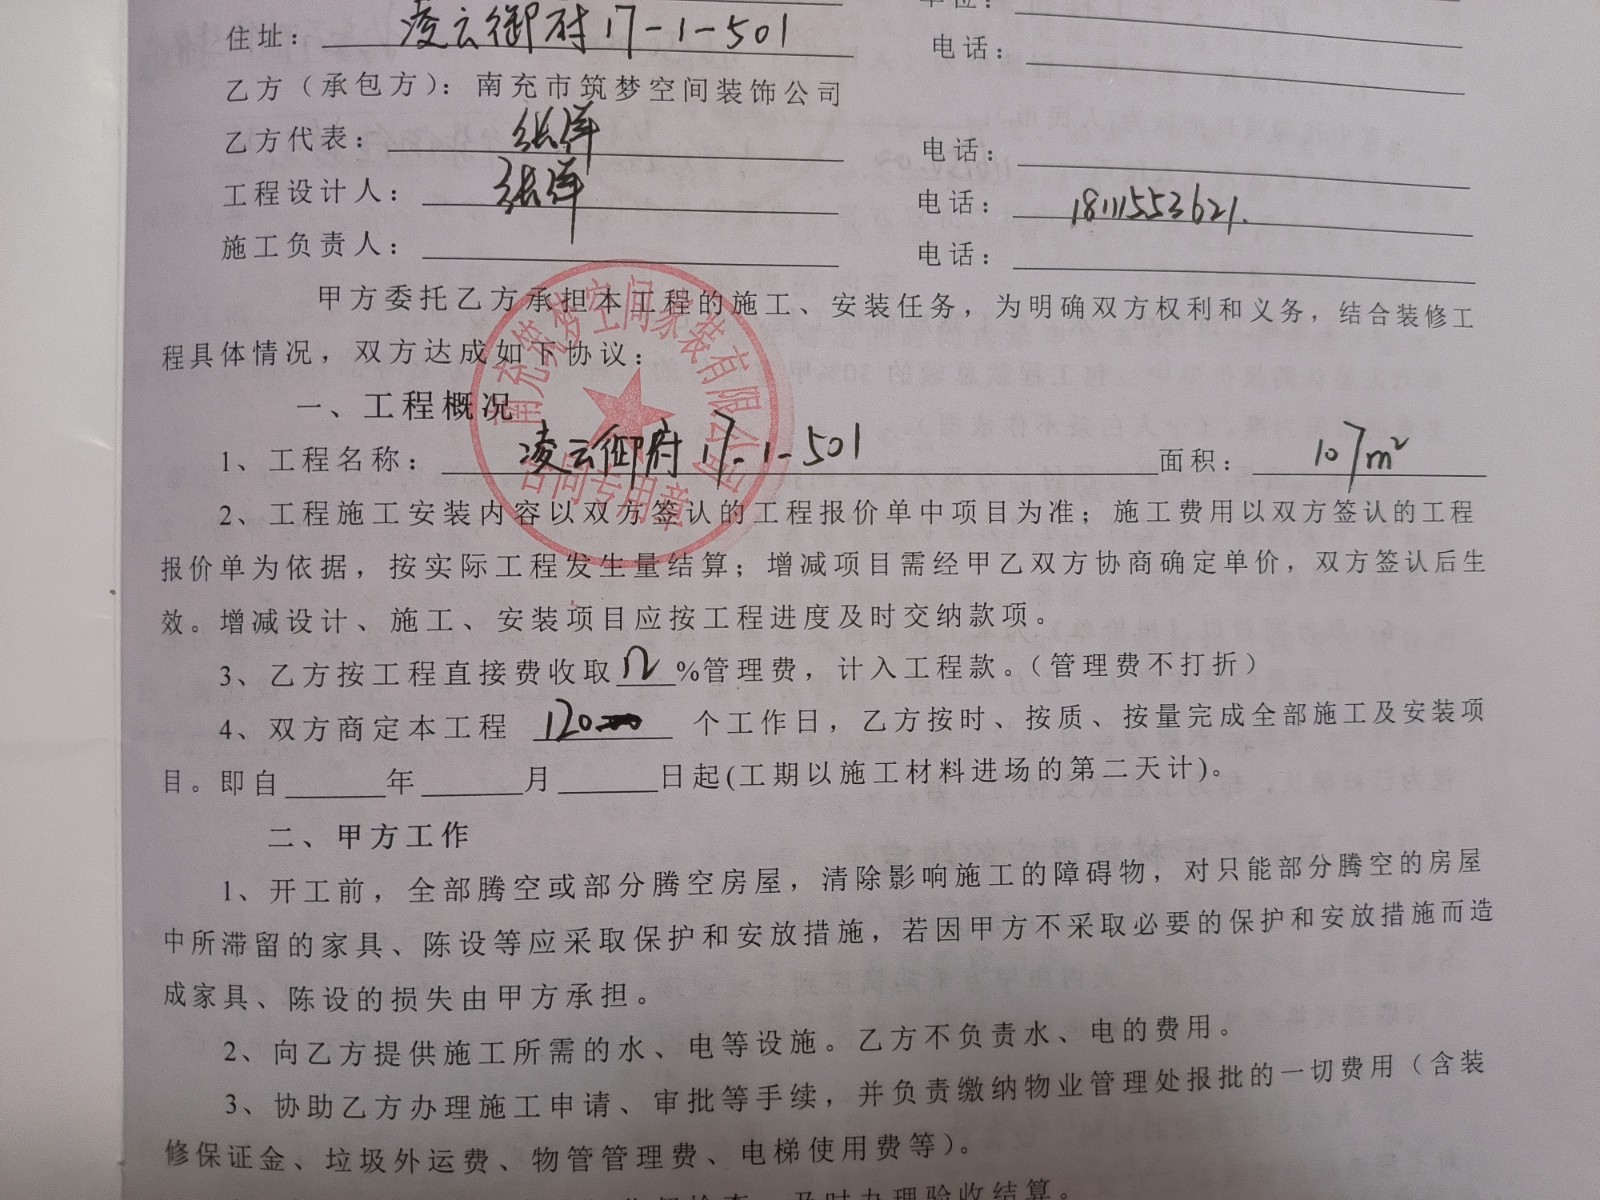 单位：
住址：凌云御府17-1-501 电话：
乙方（承包方）：南充市筑梦空间装饰公司
乙方代表：张洋 电话：
工程设计人：张洋 电话：18111553621.
施工负责人： 电话：
甲方委托乙方承担本工程的施工、安装任务，为明确双方权利和义务，结合装修工
程具体情况，双方达成如下协议：
南充筑梦空间家装有限公司
合同专用章
一、工程概况
1、工程名称：凌云御府17-1-501 面积：107m²
2、工程施工安装内容以双方签认的工程报价单中项目为准；施工费用以双方签认的工程
报价单为依据，按实际工程发生量结算；增减项目需经甲乙双方协商确定单价，双方签认后生
效。增减设计、施工、安装项目应按工程进度及时交纳款项。
3、乙方按工程直接费收取12%管理费，计入工程款。（管理费不打折）
4、双方商定本工程 120 个工作日，乙方按时、按质、按量完成全部施工及安装项
目。即自____年____月____日起(工期以施工材料进场的第二天计)。
二、甲方工作
1、开工前，全部腾空或部分腾空房屋，清除影响施工的障碍物，对只能部分腾空的房屋
中所滞留的家具、陈设等应采取保护和安放措施，若因甲方不采取必要的保护和安放措施而造
成家具、陈设的损失由甲方承担。
2、向乙方提供施工所需的水、电等设施。乙方不负责水、电的费用。
3、协助乙方办理施工申请、审批等手续，并负责缴纳物业管理处报批的一切费用（含装
修保证金、垃圾外运费、物管管理费、电梯使用费等）。
及时办理验收结算。